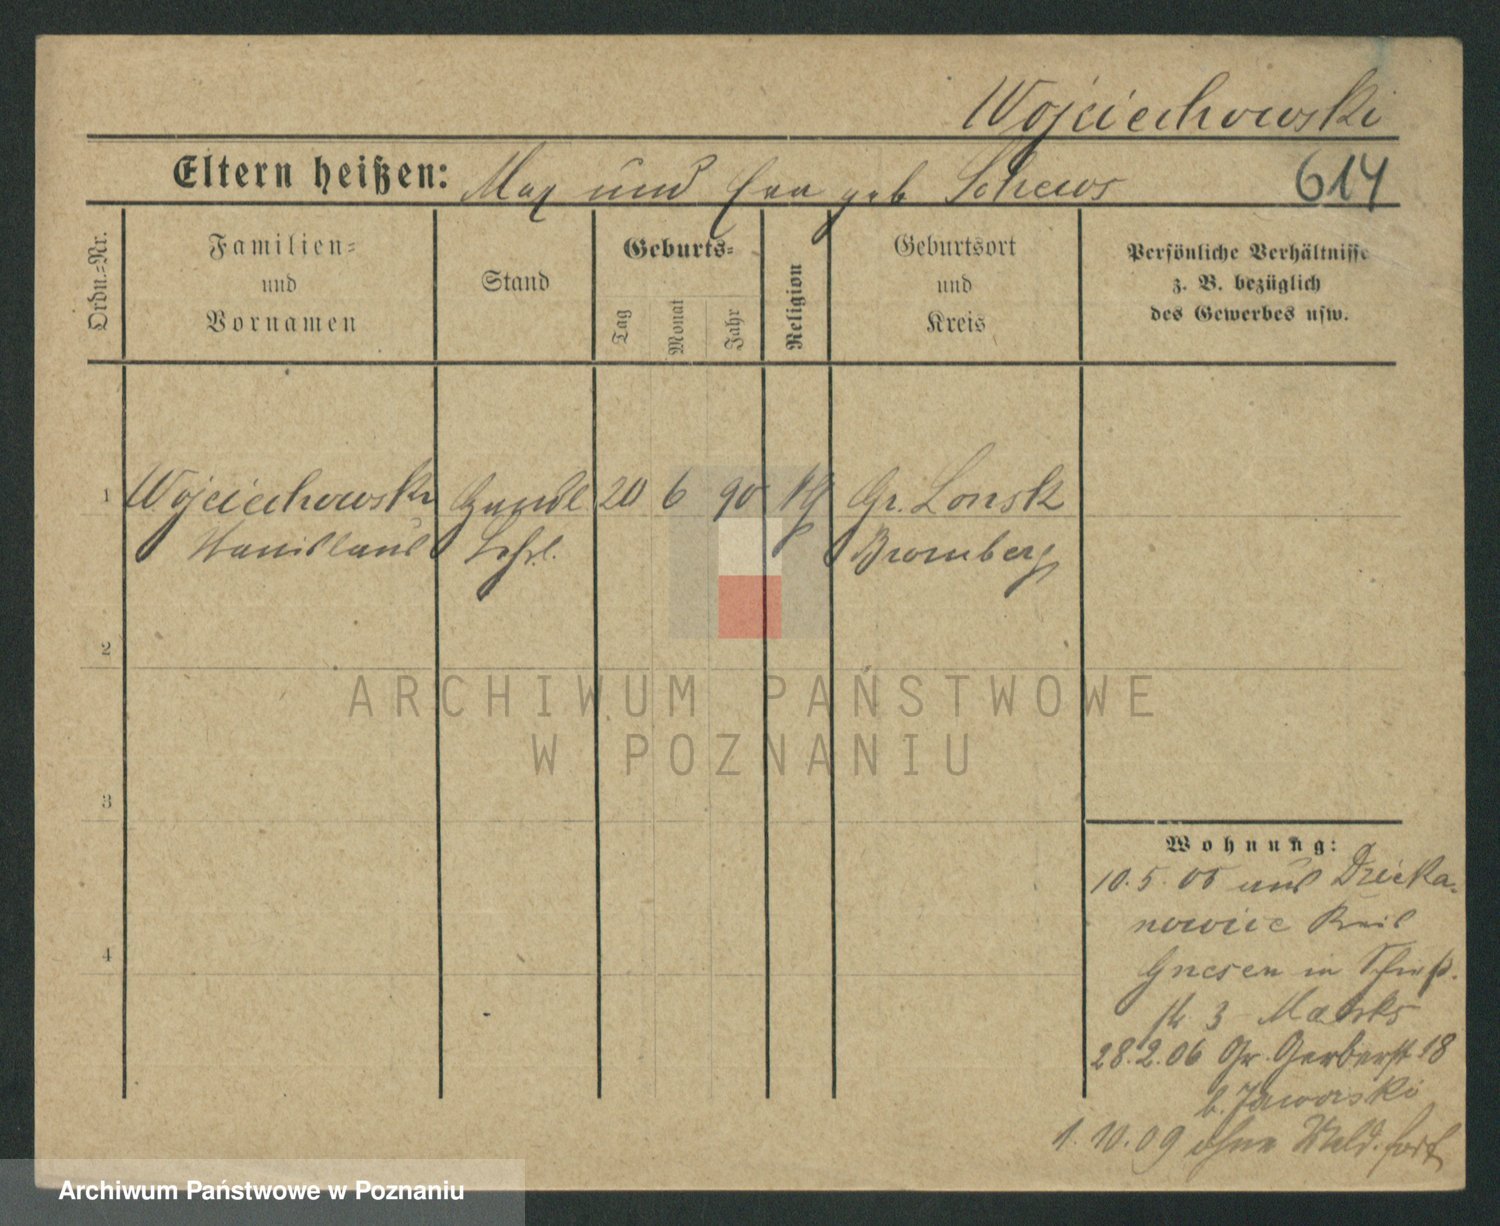 Wojciechowski
Eltern heißen: Max und Eva geb Schews
614
Ordn.=Nr.
Familien=
und
Vornamen
Stand
Geburts=
Tag
Monat
Jahr
Religion
Geburtsort
und
Kreis
Persönliche Verhältnisse
z. B. bezüglich
des Gewerbes usw.
1 Wojciechowski Handl. 20 6 90 kg Gr. Lonsk
Stanislaus Lehrl. Bromberg
2
ARCHIWUM PAŃSTWOWE
W POZNANIU
3
Wohnung:
10.5.05 aus Dzieka-
nowice Kreis
4
Gnesen in Schieß.
str 3 Marks
28.2.06 Gr. Gerberst 18
b. Jaworski
1.10.09 ohne Meld. fort
Archiwum Państwowe w Poznaniu